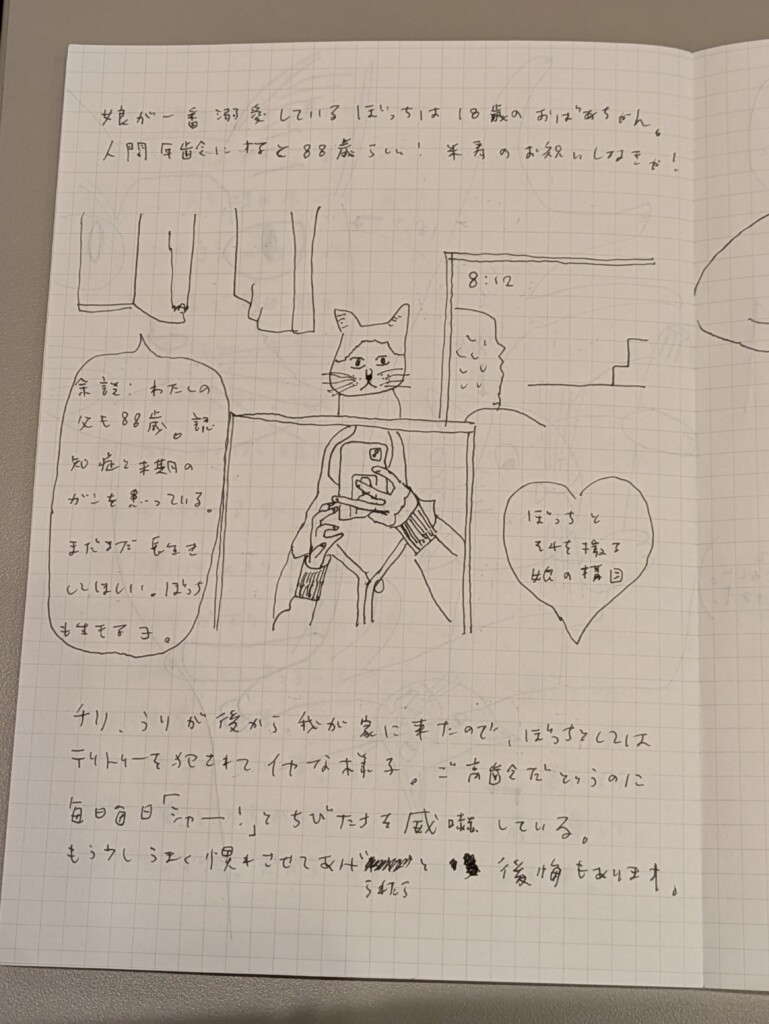 娘が一番溺愛しているぼっちは18歳のおばあちゃん。
人間年齢にすると88歳らしい！米寿のお祝いしなきゃ！
8:12
余談：わたしの
父も88歳。認
知症と末期の
ガンを患っている。
まだまだ長生き
してほしい。ぼっち
も生きる子。
ぼっちと
それを撮る
娘の構図
チリ、うりが後から我が家に来たので、ぼっちとしては
テリトリーを犯されてイヤな様子。ご高齢だというのに
毎日毎日「シャー！」とちびたちを威嚇している。
もう少しうまく慣れさせてあげ
られたら
と後悔もあります。